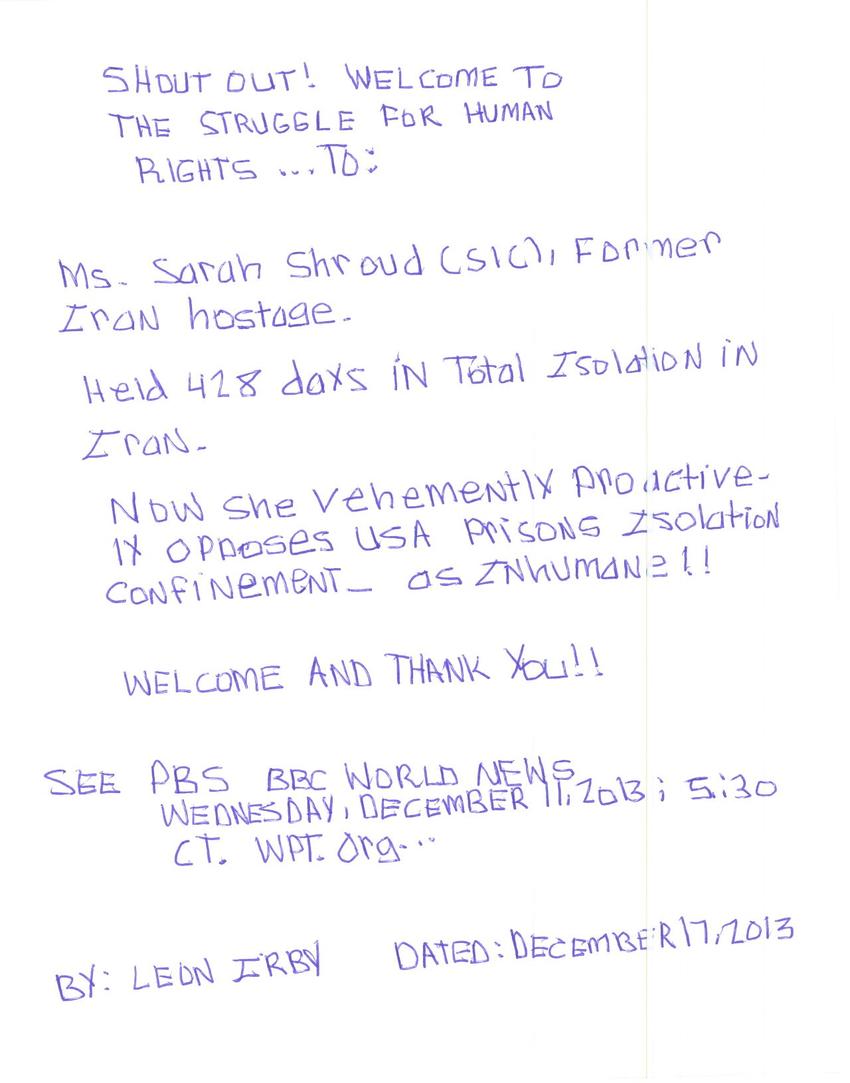 SHOUT OUT! WELCOME TO
THE STRUGGLE FOR HUMAN
RIGHTS ... TO:
Ms. Sarah Shroud (SIC), Former
Iran hostage.
Held 428 days in Total Isolation in
Iran.
Now she vehemently proactive-
ly opposes USA prisons Isolation
confinement_ as Inhumane!!
WELCOME AND THANK You!!
SEE PBS BBC WORLD NEWS
WEDNESDAY, DECEMBER 11, 2013; 5:30
CT. WPT. Org...
BY: LEON IRBY DATED: DECEMBER 17, 2013